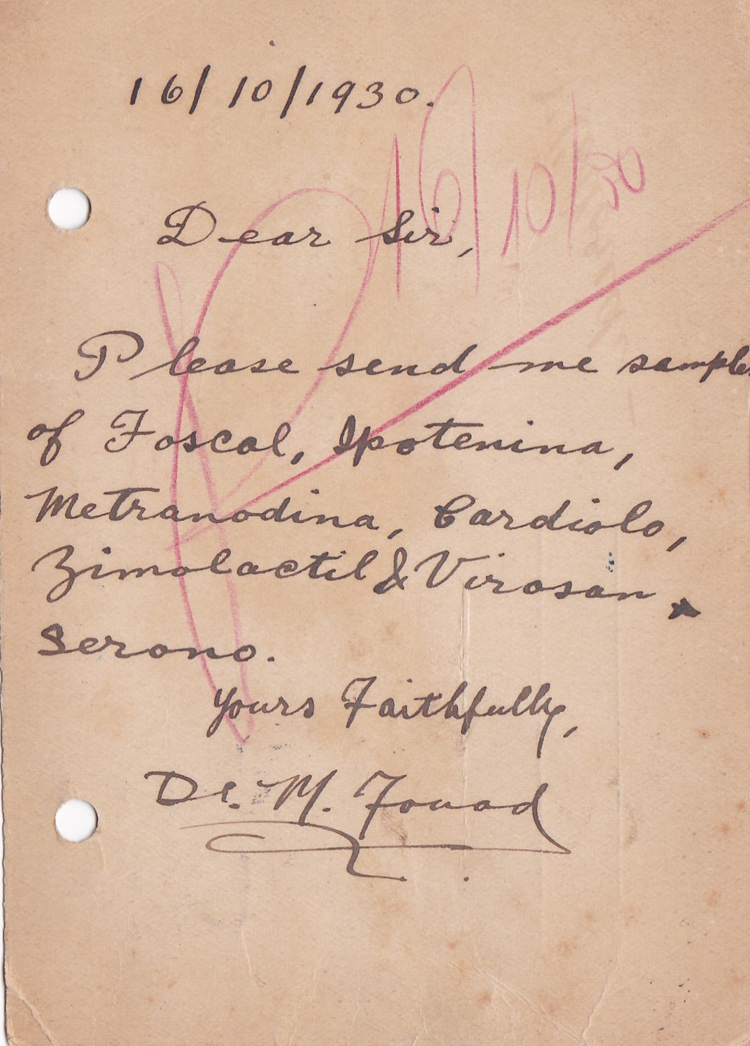 16/10/1930.
16/10/30
Dear Sir,
Please send me sample
of Foscal, Ipotenina,
Metranodina, Cardiolo,
Zimolactil & Virosan
Serono.
Yours Faithfully,
Dr. M. Fouad